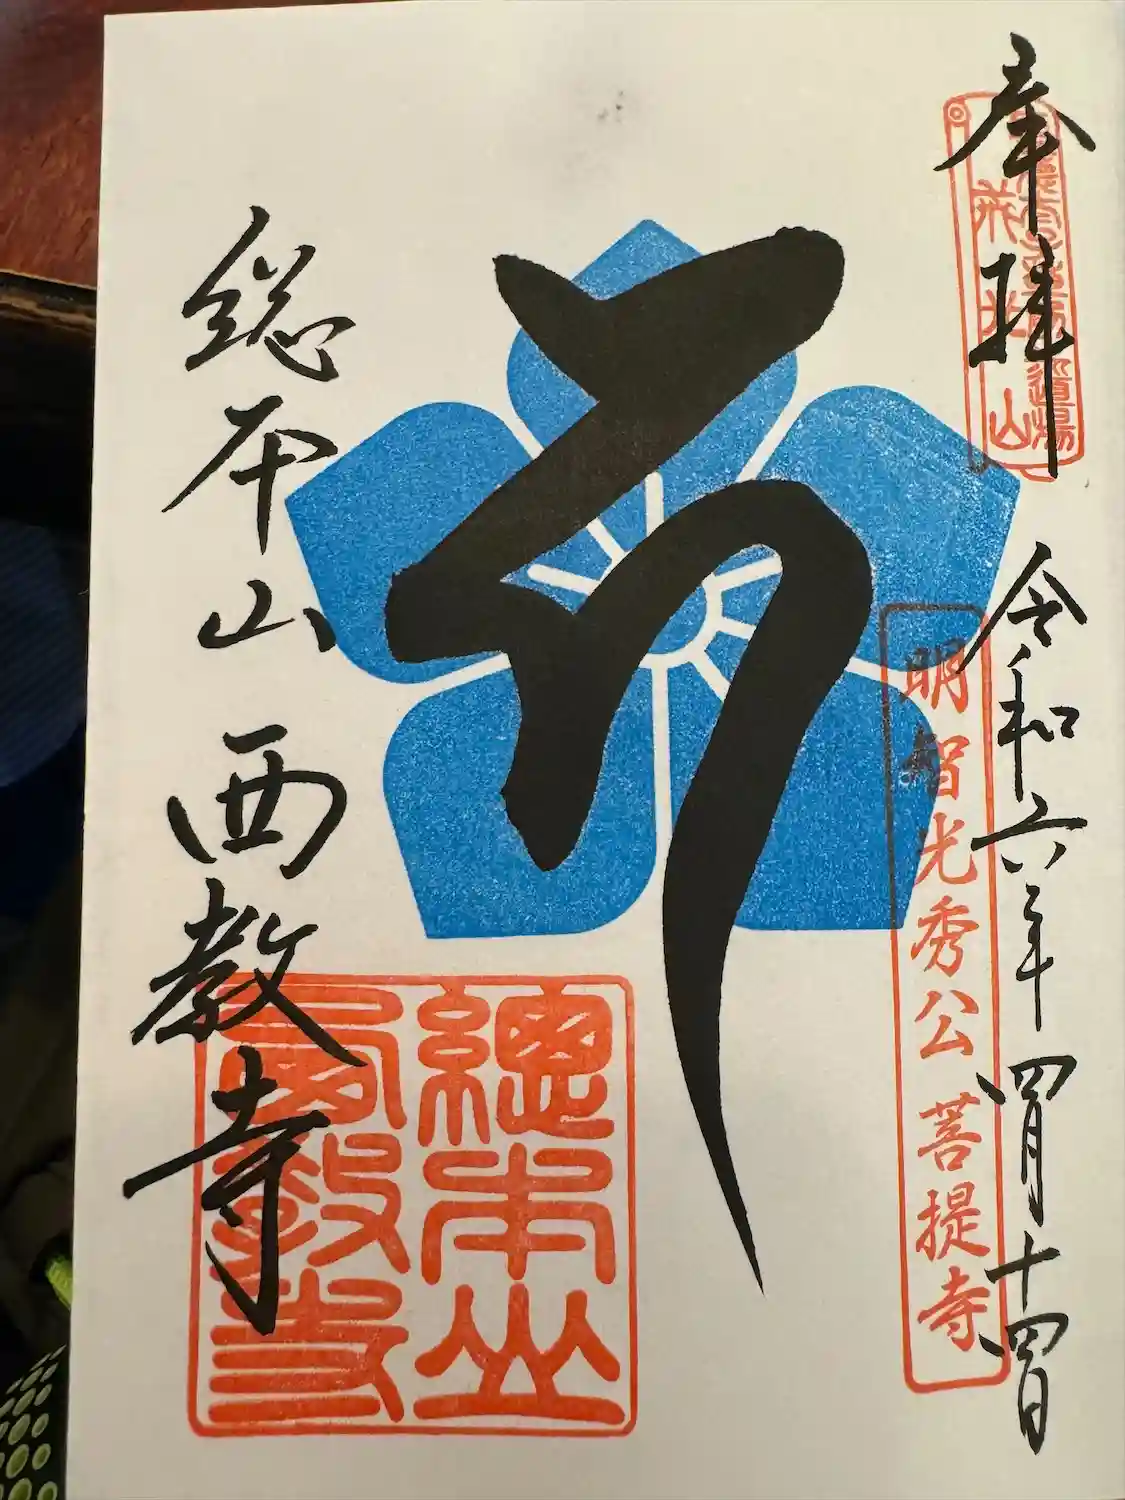 奉拝
戒光山
令和六年四月十四日
明智光秀公菩提寺
総本山 西教寺
總本山
西教寺